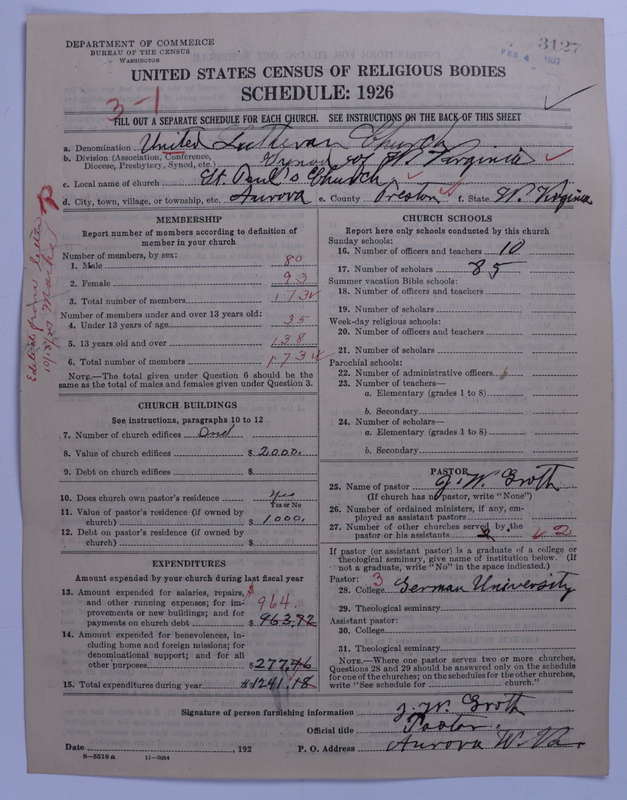 DEPARTMENT OF COMMERCE
BUREAU OF THE CENSUS
WASHINGTON
FEB 4 1927
3127
UNITED STATES CENSUS OF RELIGIOUS BODIES
SCHEDULE: 1926
3-1
FILL OUT A SEPARATE SCHEDULE FOR EACH CHURCH. SEE INSTRUCTIONS ON THE BACK OF THIS SHEET
a. Denomination United Lutheran Church
b. Division (Association, Conference, Diocese, Presbytery, Synod, etc.) Synod of W. Virginia
c. Local name of church St. Paul's Church
d. City, town, village, or township, etc. Aurora e. County Preston f. State W. Virginia
Edited from letter
MEMBERSHIP
Report number of members according to definition of
member in your church
Number of members, by sex:
1. Male 80
2. Female 93
3. Total number of members 173
Number of members under and over 13 years old:
4. Under 13 years of age 35
5. 13 years old and over 138
6. Total number of members 173
NOTE.—The total given under Question 6 should be
same as the total of males and females given under Question 3.
CHURCH BUILDINGS
See instructions, paragraphs 10 to 12
7. Number of church edifices One
8. Value of church edifices $ 2000.
9. Debt on church edifices $
10. Does church own pastor's residence Yes
Yes or No
11. Value of pastor's residence (if owned by
church) $ 1000.
12. Debt on pastor's residence (if owned by
church) $
EXPENDITURES
Amount expended by your church during last fiscal year
13. Amount expended for salaries, repairs,
and other running expenses; for im-
provements or new buildings; and for
payments on church debt $ 963.72
964.
14. Amount expended for benevolences, in-
cluding home and foreign missions; for
denominational support; and for all
other purposes $ 277.46
15. Total expenditures during year $ 1241.18
CHURCH SCHOOLS
Report here only schools conducted by this church
Sunday schools:
16. Number of officers and teachers 10
17. Number of scholars 85
Summer vacation Bible schools:
18. Number of officers and teachers
19. Number of scholars
Week-day religious schools:
20. Number of officers and teachers
21. Number of scholars
Parochial schools:
22. Number of administrative officers
23. Number of teachers—
a. Elementary (grades 1 to 8)
b. Secondary
24. Number of scholars—
a. Elementary (grades 1 to 8)
b. Secondary
PASTOR
25. Name of pastor J. W. Groth
(If church has no pastor, write "None")
26. Number of ordained ministers, if any, em-
ployed as assistant pastors
27. Number of other churches served by the
pastor or his assistants 2. 2
If pastor (or assistant pastor) is a graduate of a college or
theological seminary, give name of institution below. (If
not a graduate, write "No" in the space indicated.)
Pastor: 3
28. College German University
29. Theological seminary
Assistant pastor:
30. College
31. Theological seminary
NOTE.—Where one pastor serves two or more churches,
Questions 28 and 29 should be answered only on the schedule
for one of the churches; on the schedules for the other churches,
write "See schedule for church."
Signature of person furnishing information J. W. Groth
Official title Pastor.
Date , 192 P. O. Address Aurora W. Va.
8—5518 a 11—9054